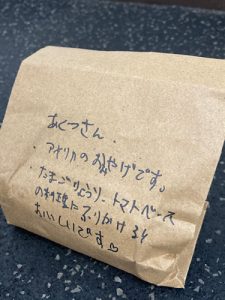 あくつさん.
・アメリカのおみやげです。
・たまごりょうり、トマトベース
の料理にふりかけると
おいしいです♡